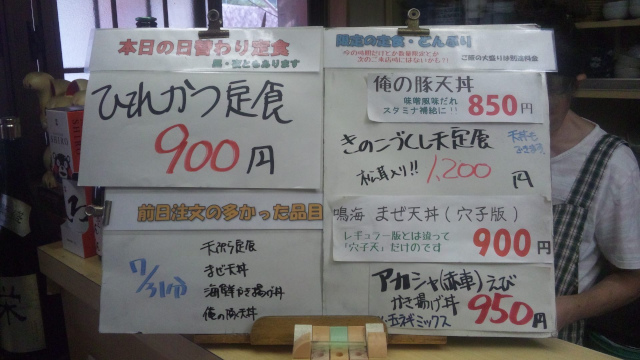 本日の日替わり定食
昼・夜ともあります
ひれかつ定食
900円
前日注文の多かった品目
7/31分
天ぷら定食
まぜ天丼
海鮮かき揚げ丼
俺の豚天丼
限定の定食・どんぶり
ご飯の大盛りは別途料金
俺の豚天丼
味噌風味だれ
スタミナ補給に!!
850円
きのこづくし天定食
松茸入り!!
1,200円
鳴海 まぜ天丼(穴子版)
レギュラー版とは違って
「穴子天」だけのです
900円
アカシャ(赤車)えび
かき揚げ丼
玉ネギミックス
950円